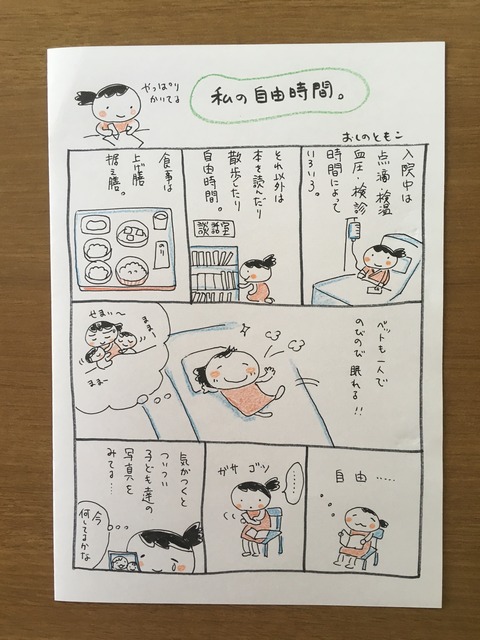 やっぱり
かいてる
私の自由時間。
おしのともこ
入院中は
点滴・検温
血圧・検診
時間によって
いろいろ。
それ以外は
本を読んだり
散歩したり
自由時間。
談話室
食事は
上げ膳
据え膳。
のり
ベットも一人で
のびのび眠れる!!
せまい〜
ままー
まま〜
自由‥‥‥
‥‥‥
ガサゴソ
気がつくと
ついつい
子ども達の
写真を
みてる…
今
何してるかな